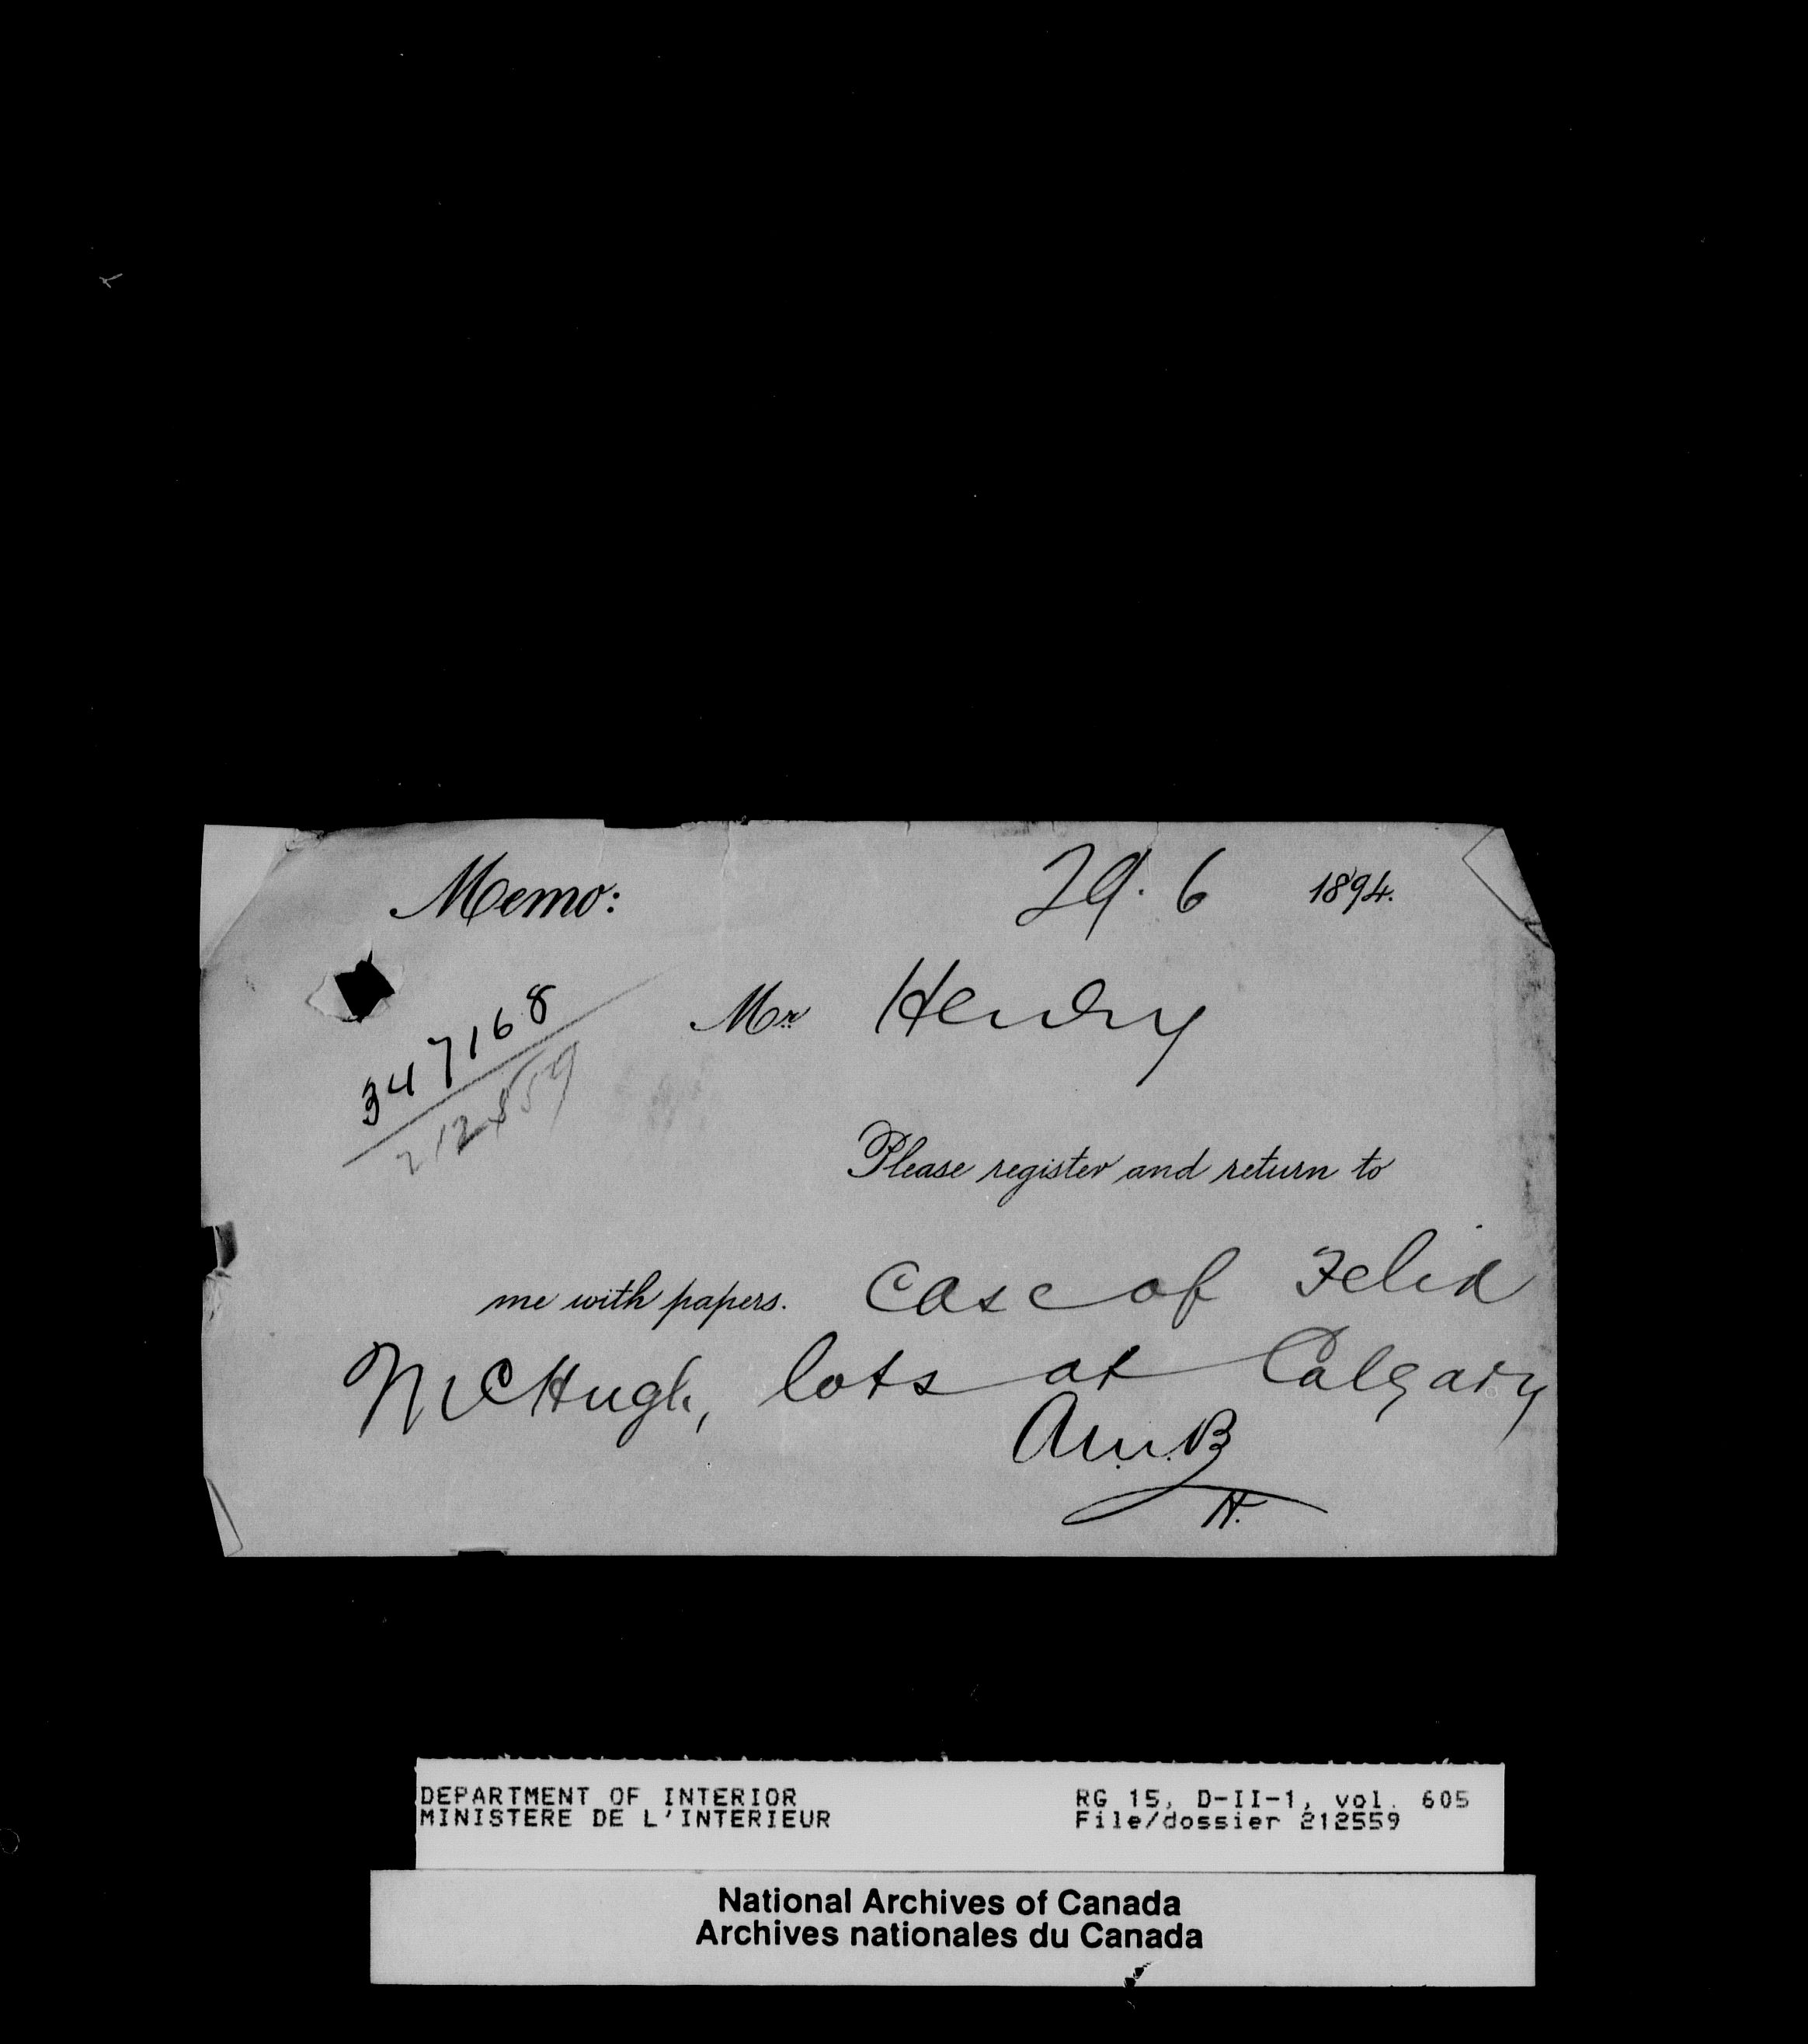 Memo: 29. 6 1894.
Mr Henry
347168
212559
Please register and return to
me with papers. Case of Felix
McHugh, lots at Calgary
A.M.B
H.
DEPARTMENT OF INTERIOR RG 15, D-II-1, vol. 605
MINISTERE DE L'INTERIEUR File/dossier 212559
National Archives of Canada
Archives nationales du Canada